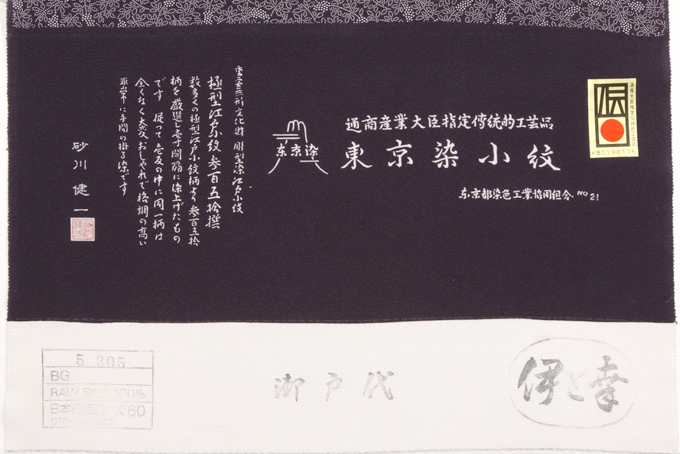 通商産業大臣指定傳統的工芸品
東京染小紋
東京都染色工業協同組合 NO 21
东京染
極型江戸小紋参百五拾撰
数多くの極型江戸小紋柄より参百五拾
柄を厳選し壱寸間隔に染上げたもの
です 従って壱反の中に同一柄は
全くなく大変おしゃれで格調の高い
非常に手間の掛る染です
砂川健一
5 305
BG
RAW SILK 100%
60
御戸代
伊と幸